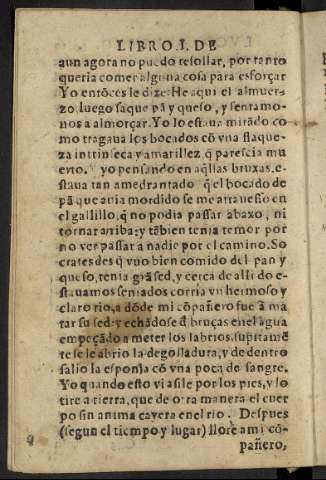 LIBRO. I. DE
aun agora no puedo resollar, por tanto
queria comer alguna cosa para esforçar
Yo entōces le dize: He aqui el almuer-
zo, luego saque pā y queso, y sentamo-
nos a almorçar. Yo lo estaua mirādo co
mo tragaua los bocados cō vna flaque-
za intrinseca y amarillez q̄ parescia mu
erto. yo pensando en aq̄llas bruxas, e-
staua tan amedrantado q̄ el bocado de
pā que auia mordido se me atrauesso en
el gallillo, q̄ no podia passar abaxo, ni
tornar arriba: y tābien tenia temor por
no ver passar a nadie por el camino. So
crates des q̄ vuo bien comido del pan y
queso, tenia grā sed, y cerca de alli do e-
stauamos sentados corria vn hermoso y
claro rio, a dōde mi cōpañero fue ā ma
tar su sed: y echādose d̄ bruças en el agua
empeçādo a meter los labrios, supitamē
te se le abrio la degolladura, y de dentro
salio la esponja cō vna poca de sangre.
Yo quando esto vi asile por los pies, y lo
tire a tierra, que de otra manera el cuer
po sin anima cayera en el rio. Despues
(segun el tiempo y lugar) llorè a mi cō-
pañero,